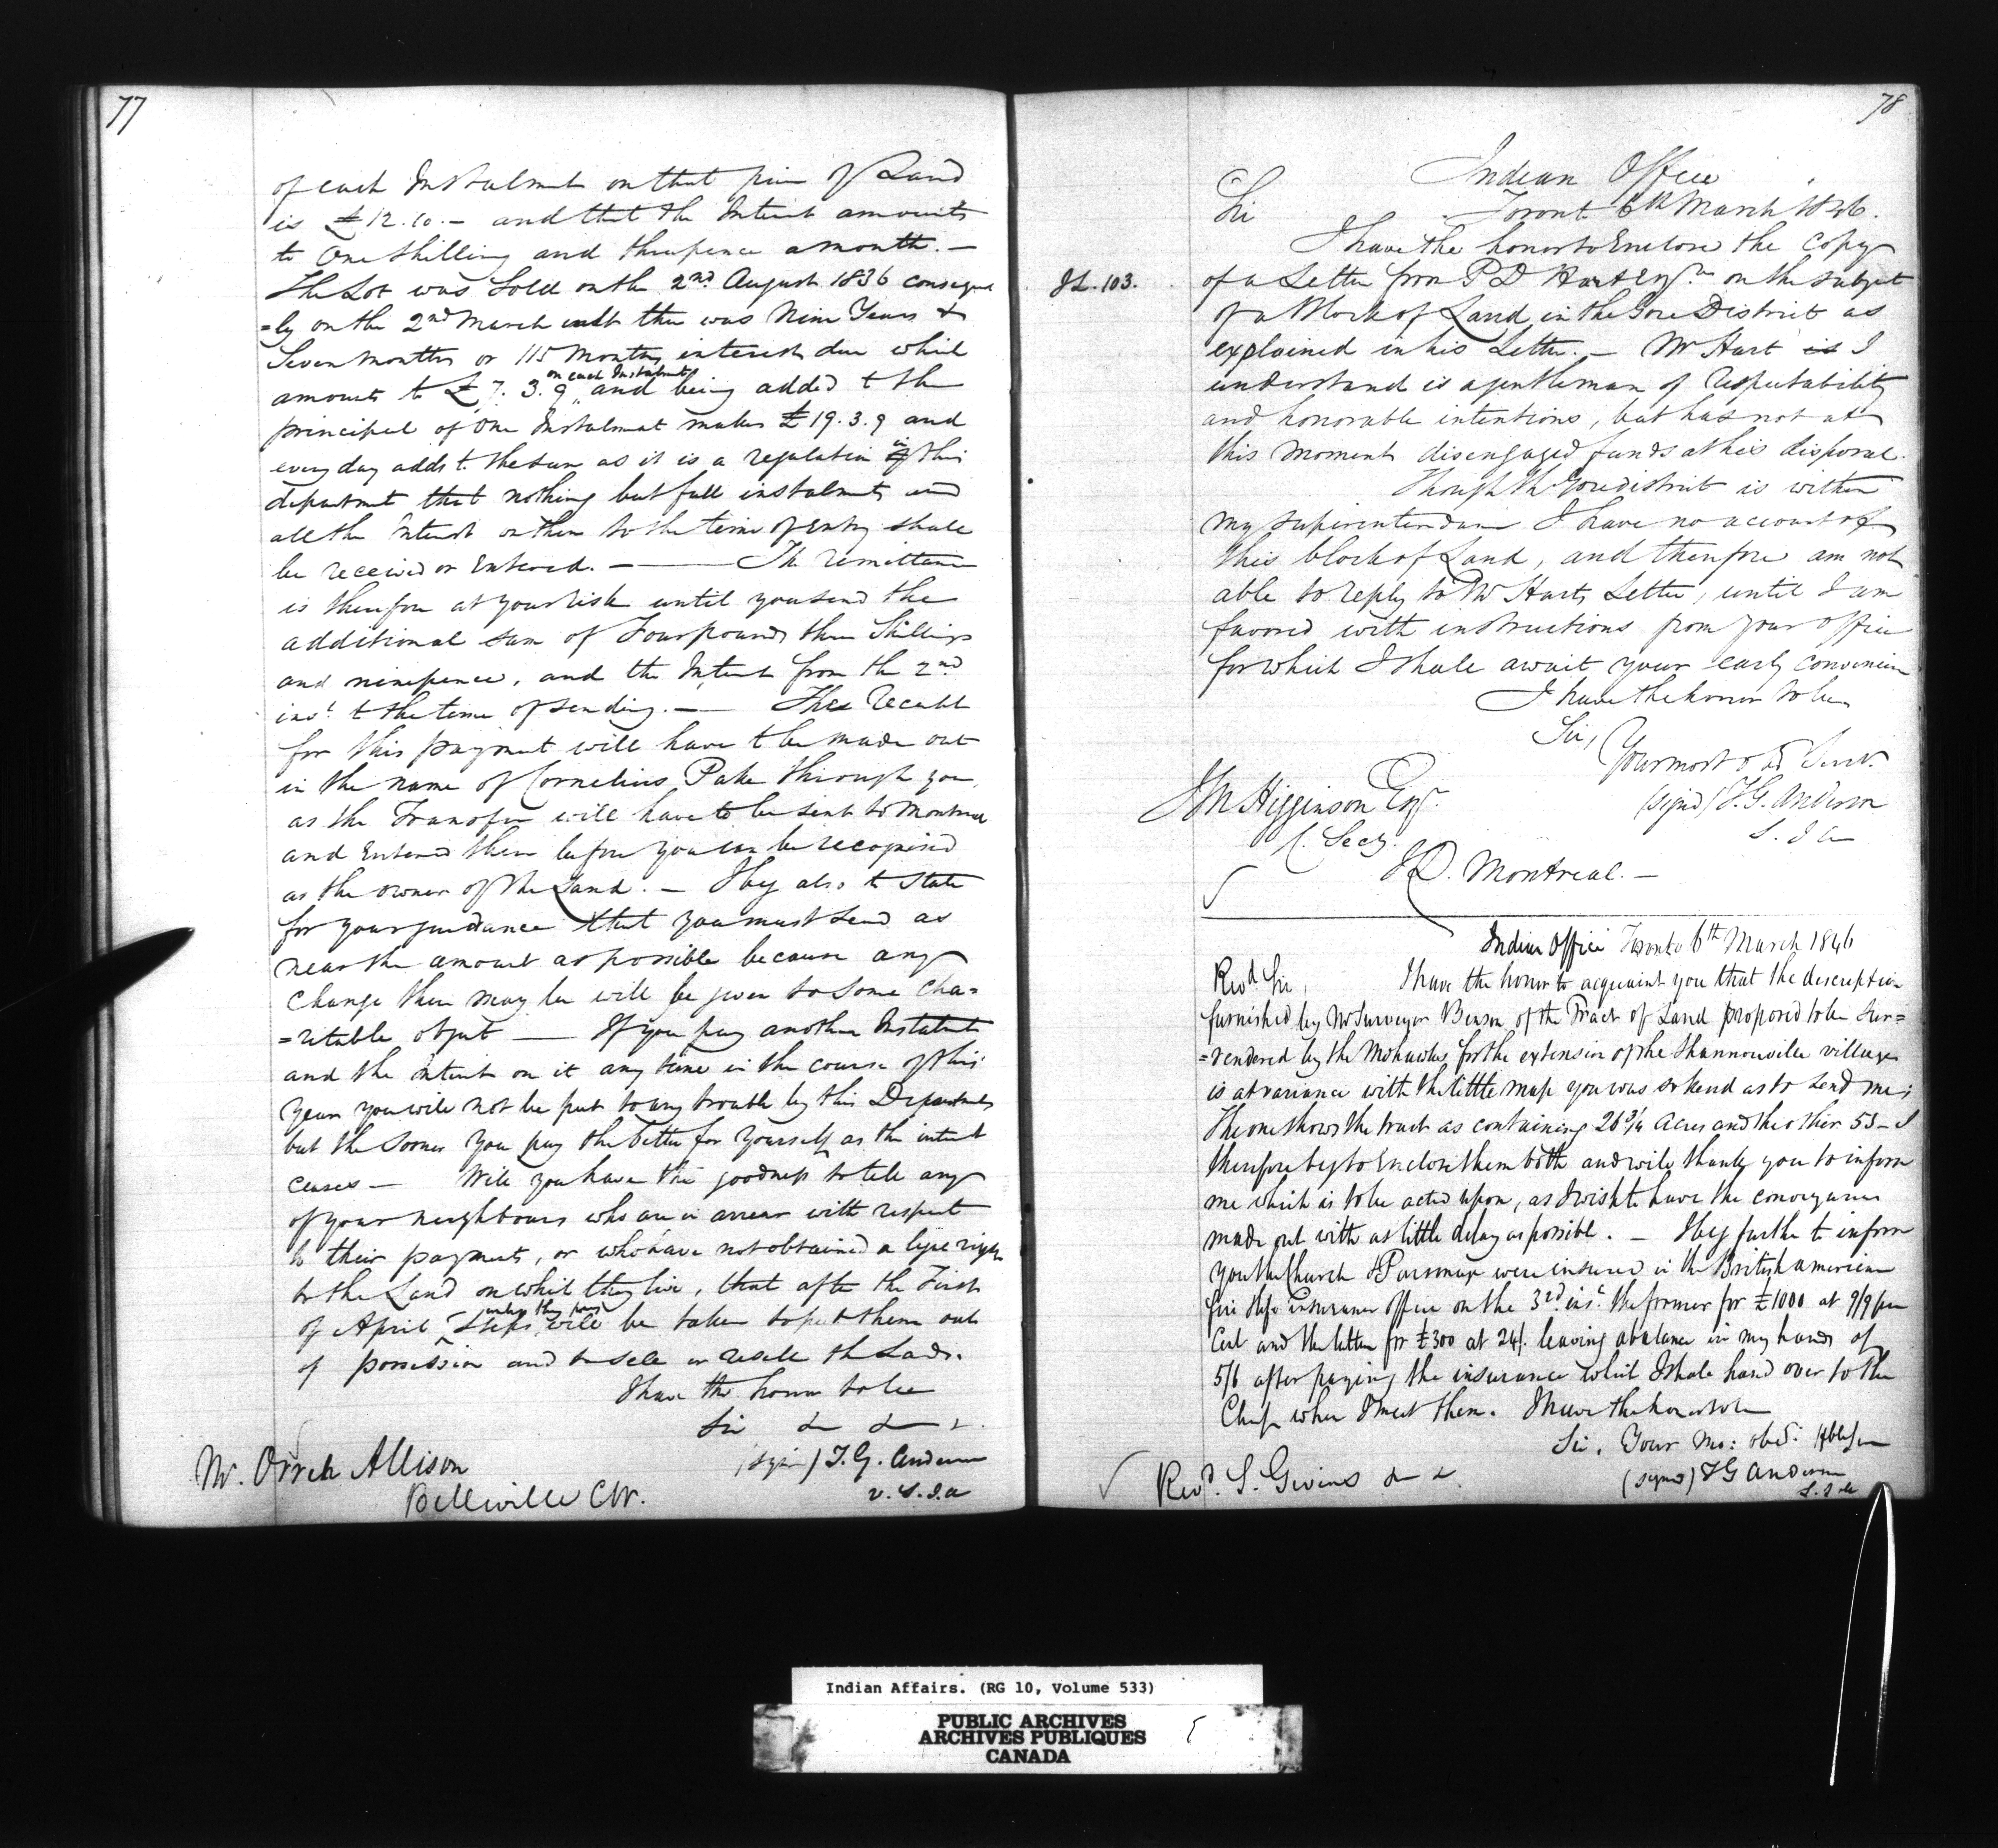 77
of each Instalment on that piece of Land
is £12.10.– and that the Interest amounts
to One Shilling and threepence a month. –
The Lot was Sold on the 2nd August 1836 conseque
=ly on the 2nd March inst there was Nine Years &
Seven months or 115 Months interest due which
amounts to £7.3.9 on each Instalment and being added to the
principal of One Instalment makes £19.3.9 and
every day adds to the sum as it is a regulation in this
department that nothing but full instalments and
all the Interest on them to the time of Entry shall
be received or Entered. – The remittance
is therefore at your risk until you send the
additional sum of Four pounds three Shillings
and ninepence, and the Interest from the 2nd
inst to the time of sending. – The Receipt
for this payment will have to be made out
in the name of Cornelius Pake through you
as the Transfer will have to be sent to Montreal
and Entered there before you can be recognised
as the owner of the Land. – I beg also to State
for your guidance that you must send as
near the amount as possible because any
Change there may be will be given to some Cha=
=ritable object – If you pay another Instalment
and the interest on it any time in the course of this
year you will not be put to any trouble by this Department
but the sooner you pay the better for yourself as the interest
ceases – Will you have the goodness to tell any
of your neighbours who are in arrear with respect
to their payments, or who have not obtained a legal right
to the Land on which they live, that after the First
of April unless they pay Steps will be taken to put them out
of possession and to sell or resell the Lands.
I have the honor to be
Sir & & &.
(signed) T. G. Anderson
v. S. I. a
Mr. Orren Allison
Belleville CW.
78
Indian Office
Toronto 6th March 1846.
Sir
I have the honor to Enclose the Copy
IL. 103.
of a Letter from P D Hart Esqre on the subject
of a Block of Land in the Gore District as
explained in his Letter. – Mr Hart is I
understand is a gentleman of respectability
and honorable intentions, but has not at
this moment disengaged funds at his disposal.
Though the Gore district is within
my Superintendance I have no account of
this block of Land, and therefore am not
able to reply to Mr Harts Letter, until I am
favored with instructions from your office
for which I shall await your early convenience
I have the honor to be
Sir,
Your most obd Servt.
(signd) T. G. Anderson
S. I. a
J M Higginson Esqr.
C. Secy.
I D. Montreal. –
Indian Office Toronto 6th March 1846
Revd. Sir, I have the honor to acquaint you that the description
furnished by Mr Surveyor Benson of the Tract of Land proposed to be Sur=
=rendered by the Mohawks for the extension of the Shannonville village
is at variance with the little map you was so kind as to send me;
The one shows the tract as containing 26 3/4 Acres and the other 53 – I
therefore beg to Enclose them both and will thank you to inform
me which is to be acted upon, as I wish to have the conveyance
made out with as little delay as possible. – I beg further to inform
you the Church & Parsonage were insured in the British american
fire & life insurance office on the 3rd inst. the former for £1000 at 9/9 per
Cent and the latter for £300 at 24/. leaving a balance in my hands of
5/6 after paying the insurance which I shall hand over to the
Chiefs when I meet them. I have the honor to be
Sir, Your Mo: obt. Hble Sen
(signed) T G Anderson
S. I. a
Revd. S. Givins & &.
Indian Affairs. (RG 10, Volume 533)
PUBLIC ARCHIVES
ARCHIVES PUBLIQUES
CANADA